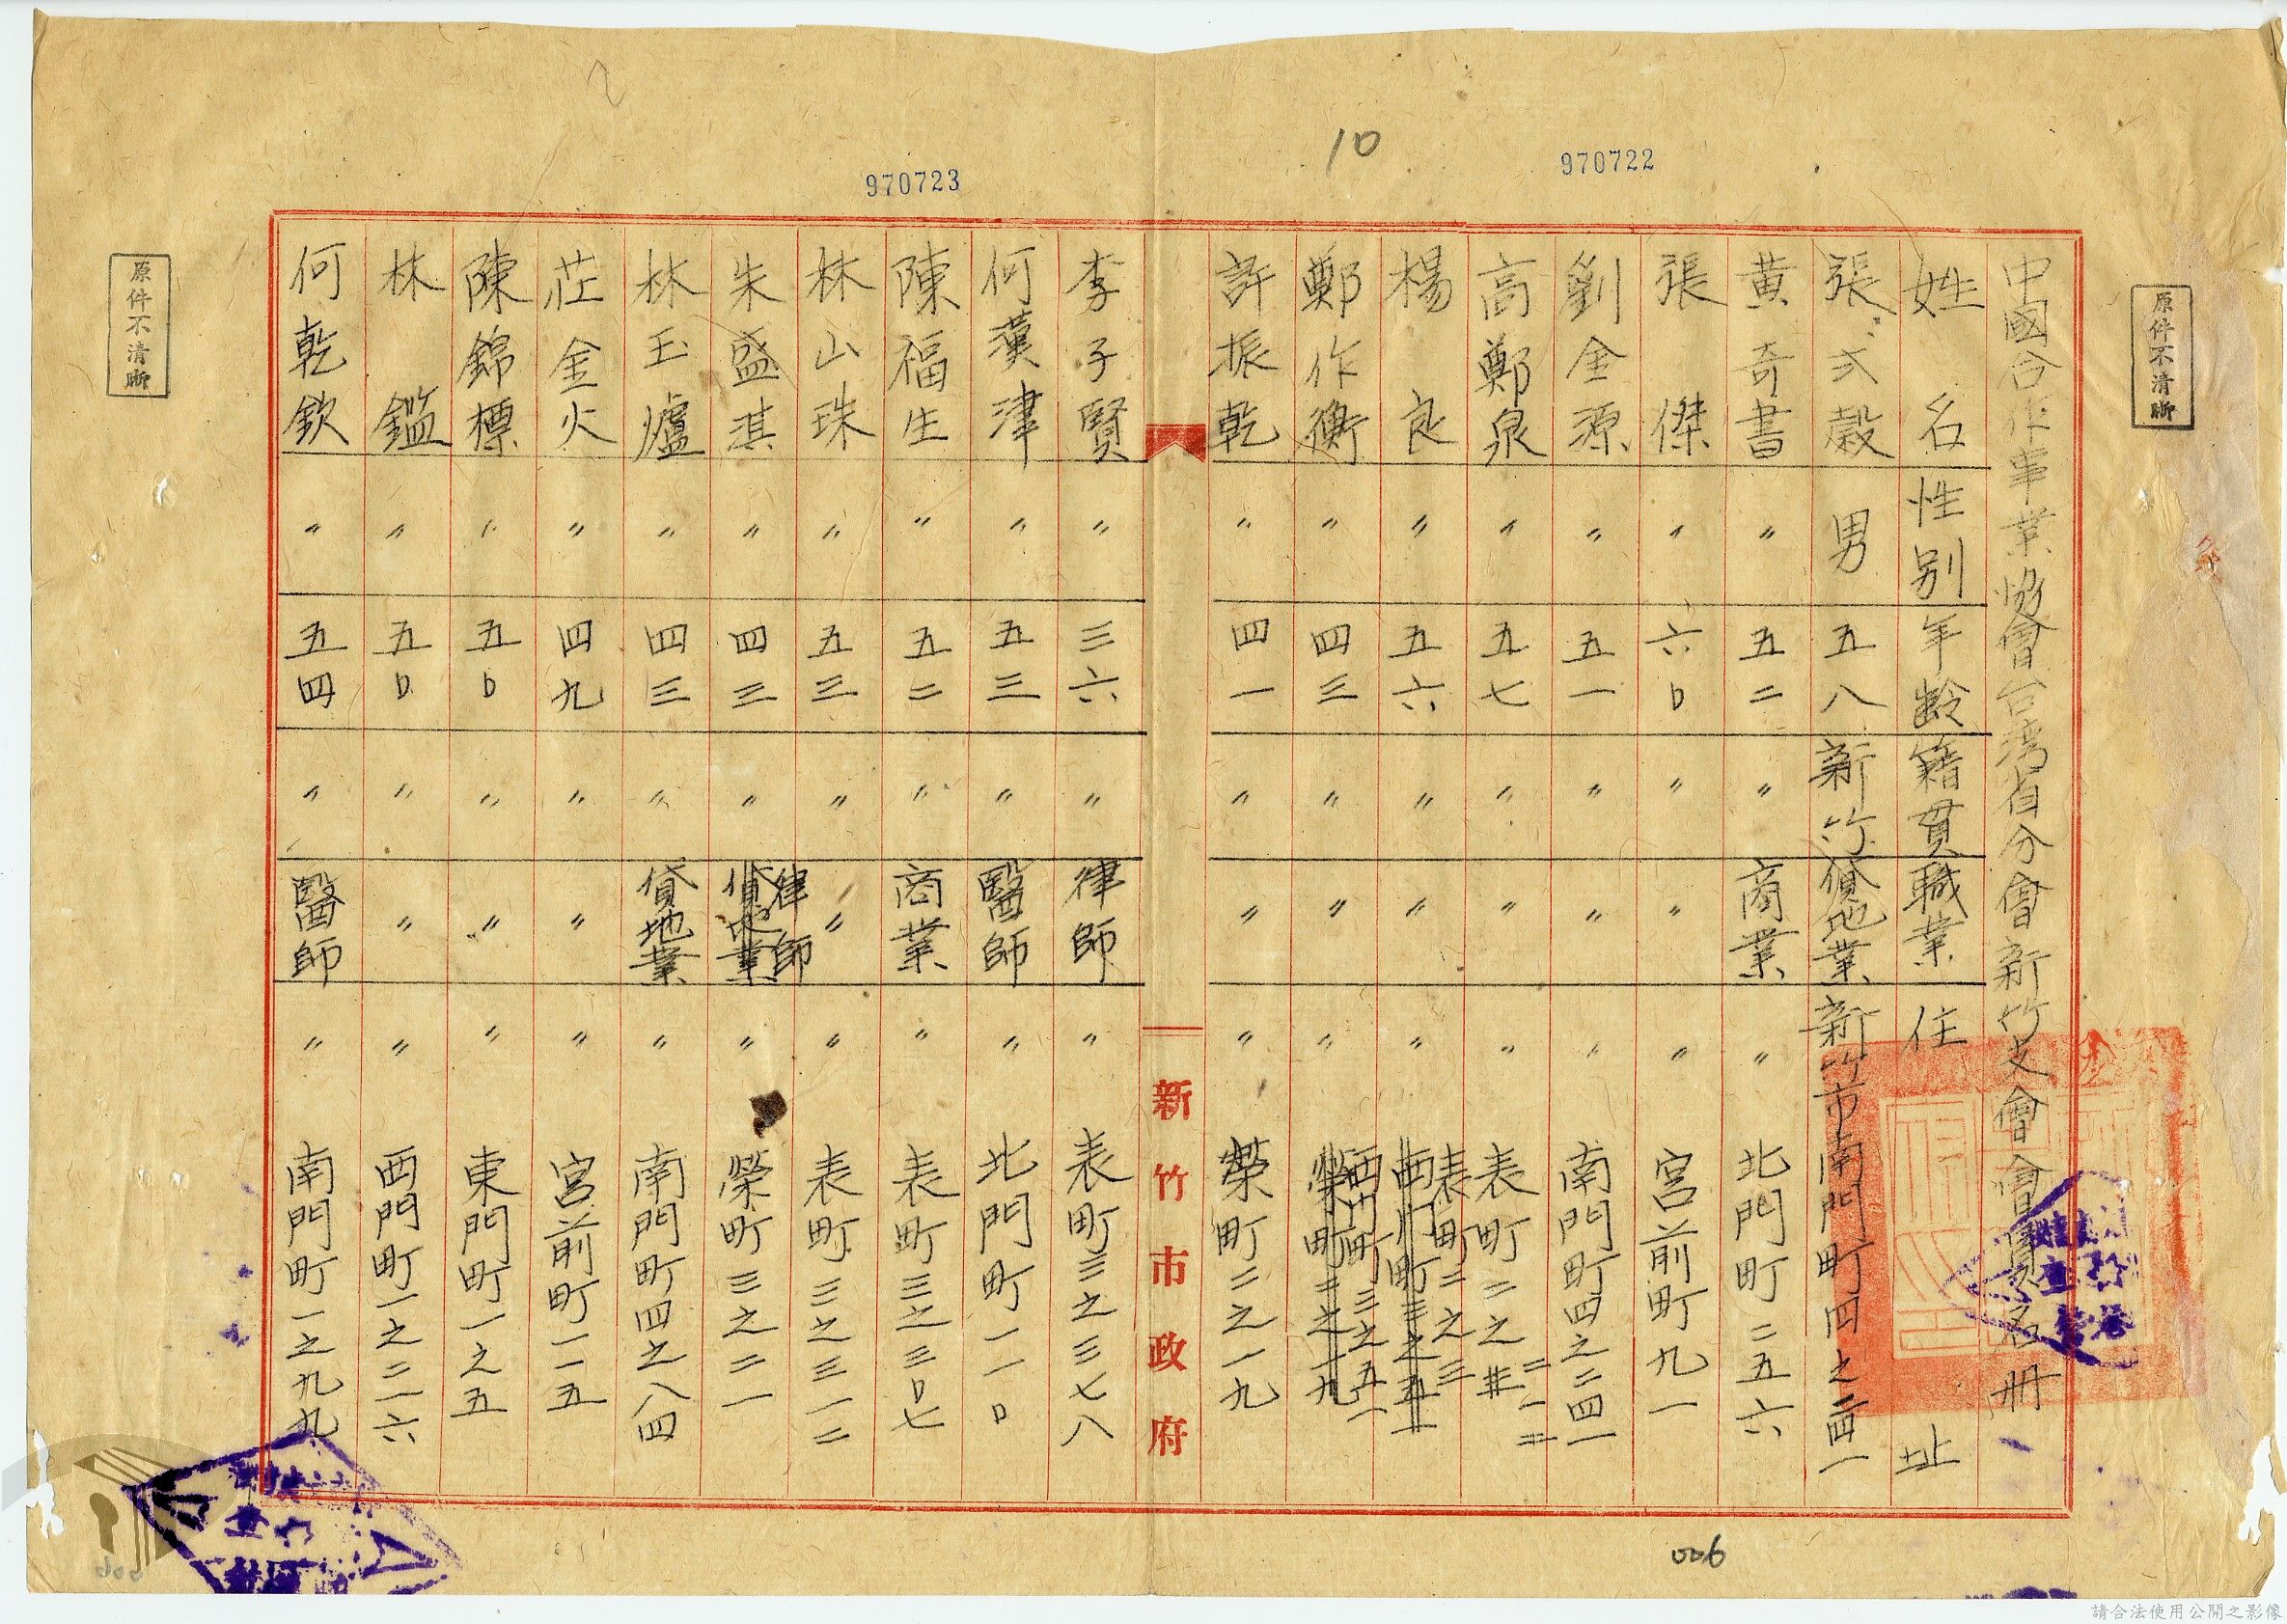 10
970722
970723
原件不清晰
中國合作事業協會台灣省分會新竹支會會員名冊
姓名 性別 年齡 籍貫 職業 住址
張式穀 男 五八 新竹 貸地業 新竹市南門町四之二四一
黃奇書 〃 五二 〃 商業 〃 北門町二五六
張傑 〃 六0 〃 〃 〃 宮前町九一
劉金源 〃 五一 〃 〃 〃 南門町四之二四一
高鄭泉 〃 五七 〃 〃 〃 表町二之二一二
楊良 〃 五六 〃 〃 〃 表町二之三
鄭作衡 〃 四三 〃 〃 〃 西門町三之五一
許振乾 〃 四一 〃 〃 〃 榮町二之一九
新竹市政府
李子賢 〃 三六 〃 律師 〃 表町三之三七八
何漢津 〃 五三 〃 醫師 〃 北門町一一0
陳福生 〃 五二 〃 商業 〃 表町三之三0七
林山珠 〃 五三 〃 〃 〃 表町三之三一二
朱盛淇 〃 四三 〃 律師 〃 榮町三之二一
林玉爐 〃 四三 〃 貸地業 〃 南門町四之八四
莊金火 〃 四九 〃 〃 〃 宮前町一一五
陳錦標 〃 五0 〃 〃 〃 東門町一之五
林鑑 〃 五0 〃 〃 〃 西門町一之二一六
何乾欽 〃 五四 〃 醫師 〃 南門町一之九九
原件不清晰
006
請合法使用公開之影像